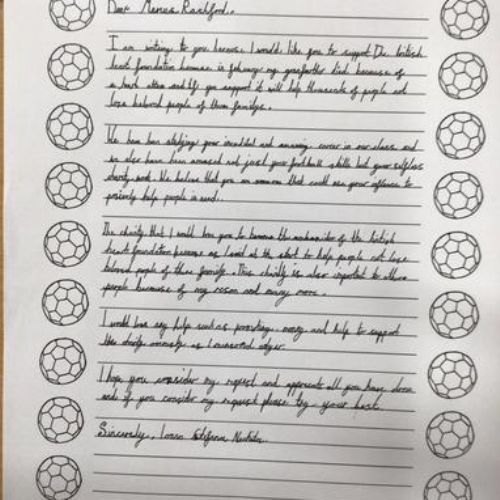 Dear Marcus Rashford,
I am writing to you because I would like you to support The british
heart foundation because in february my grandfarther died because of
a heart attac and if you support it will help thousands of people not
lose beloved people of there familys.
We have been studying your incredibel and amazing career in our class and
we also have been amazed not just your football skills but your selfless
charity work. We believe that you are someone that could use your influence to
people in need.
The charity that I would love you to become the of the british
heart foundation because as I said at the start to help people not lose
beloved people of there family. This charity is also important to other
people because of my reson and many more.
I would love any help such as money and help to support
this charity as I
I hope you consider my request and appreciate all you have done
and if you consider my request please try your best.
Sincerely,